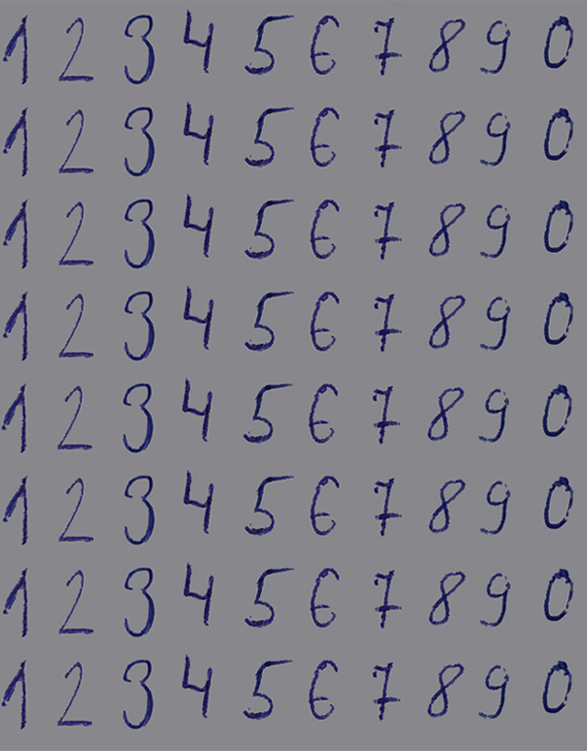 1 2 3 4 5 6 7 8 9 0
1 2 3 4 5 6 7 8 9 0
1 2 3 4 5 6 7 8 9 0
1 2 3 4 5 6 7 8 9 0
1 2 3 4 5 6 7 8 9 0
1 2 3 4 5 6 7 8 9 0
1 2 3 4 5 6 7 8 9 0
1 2 3 4 5 6 7 8 9 0